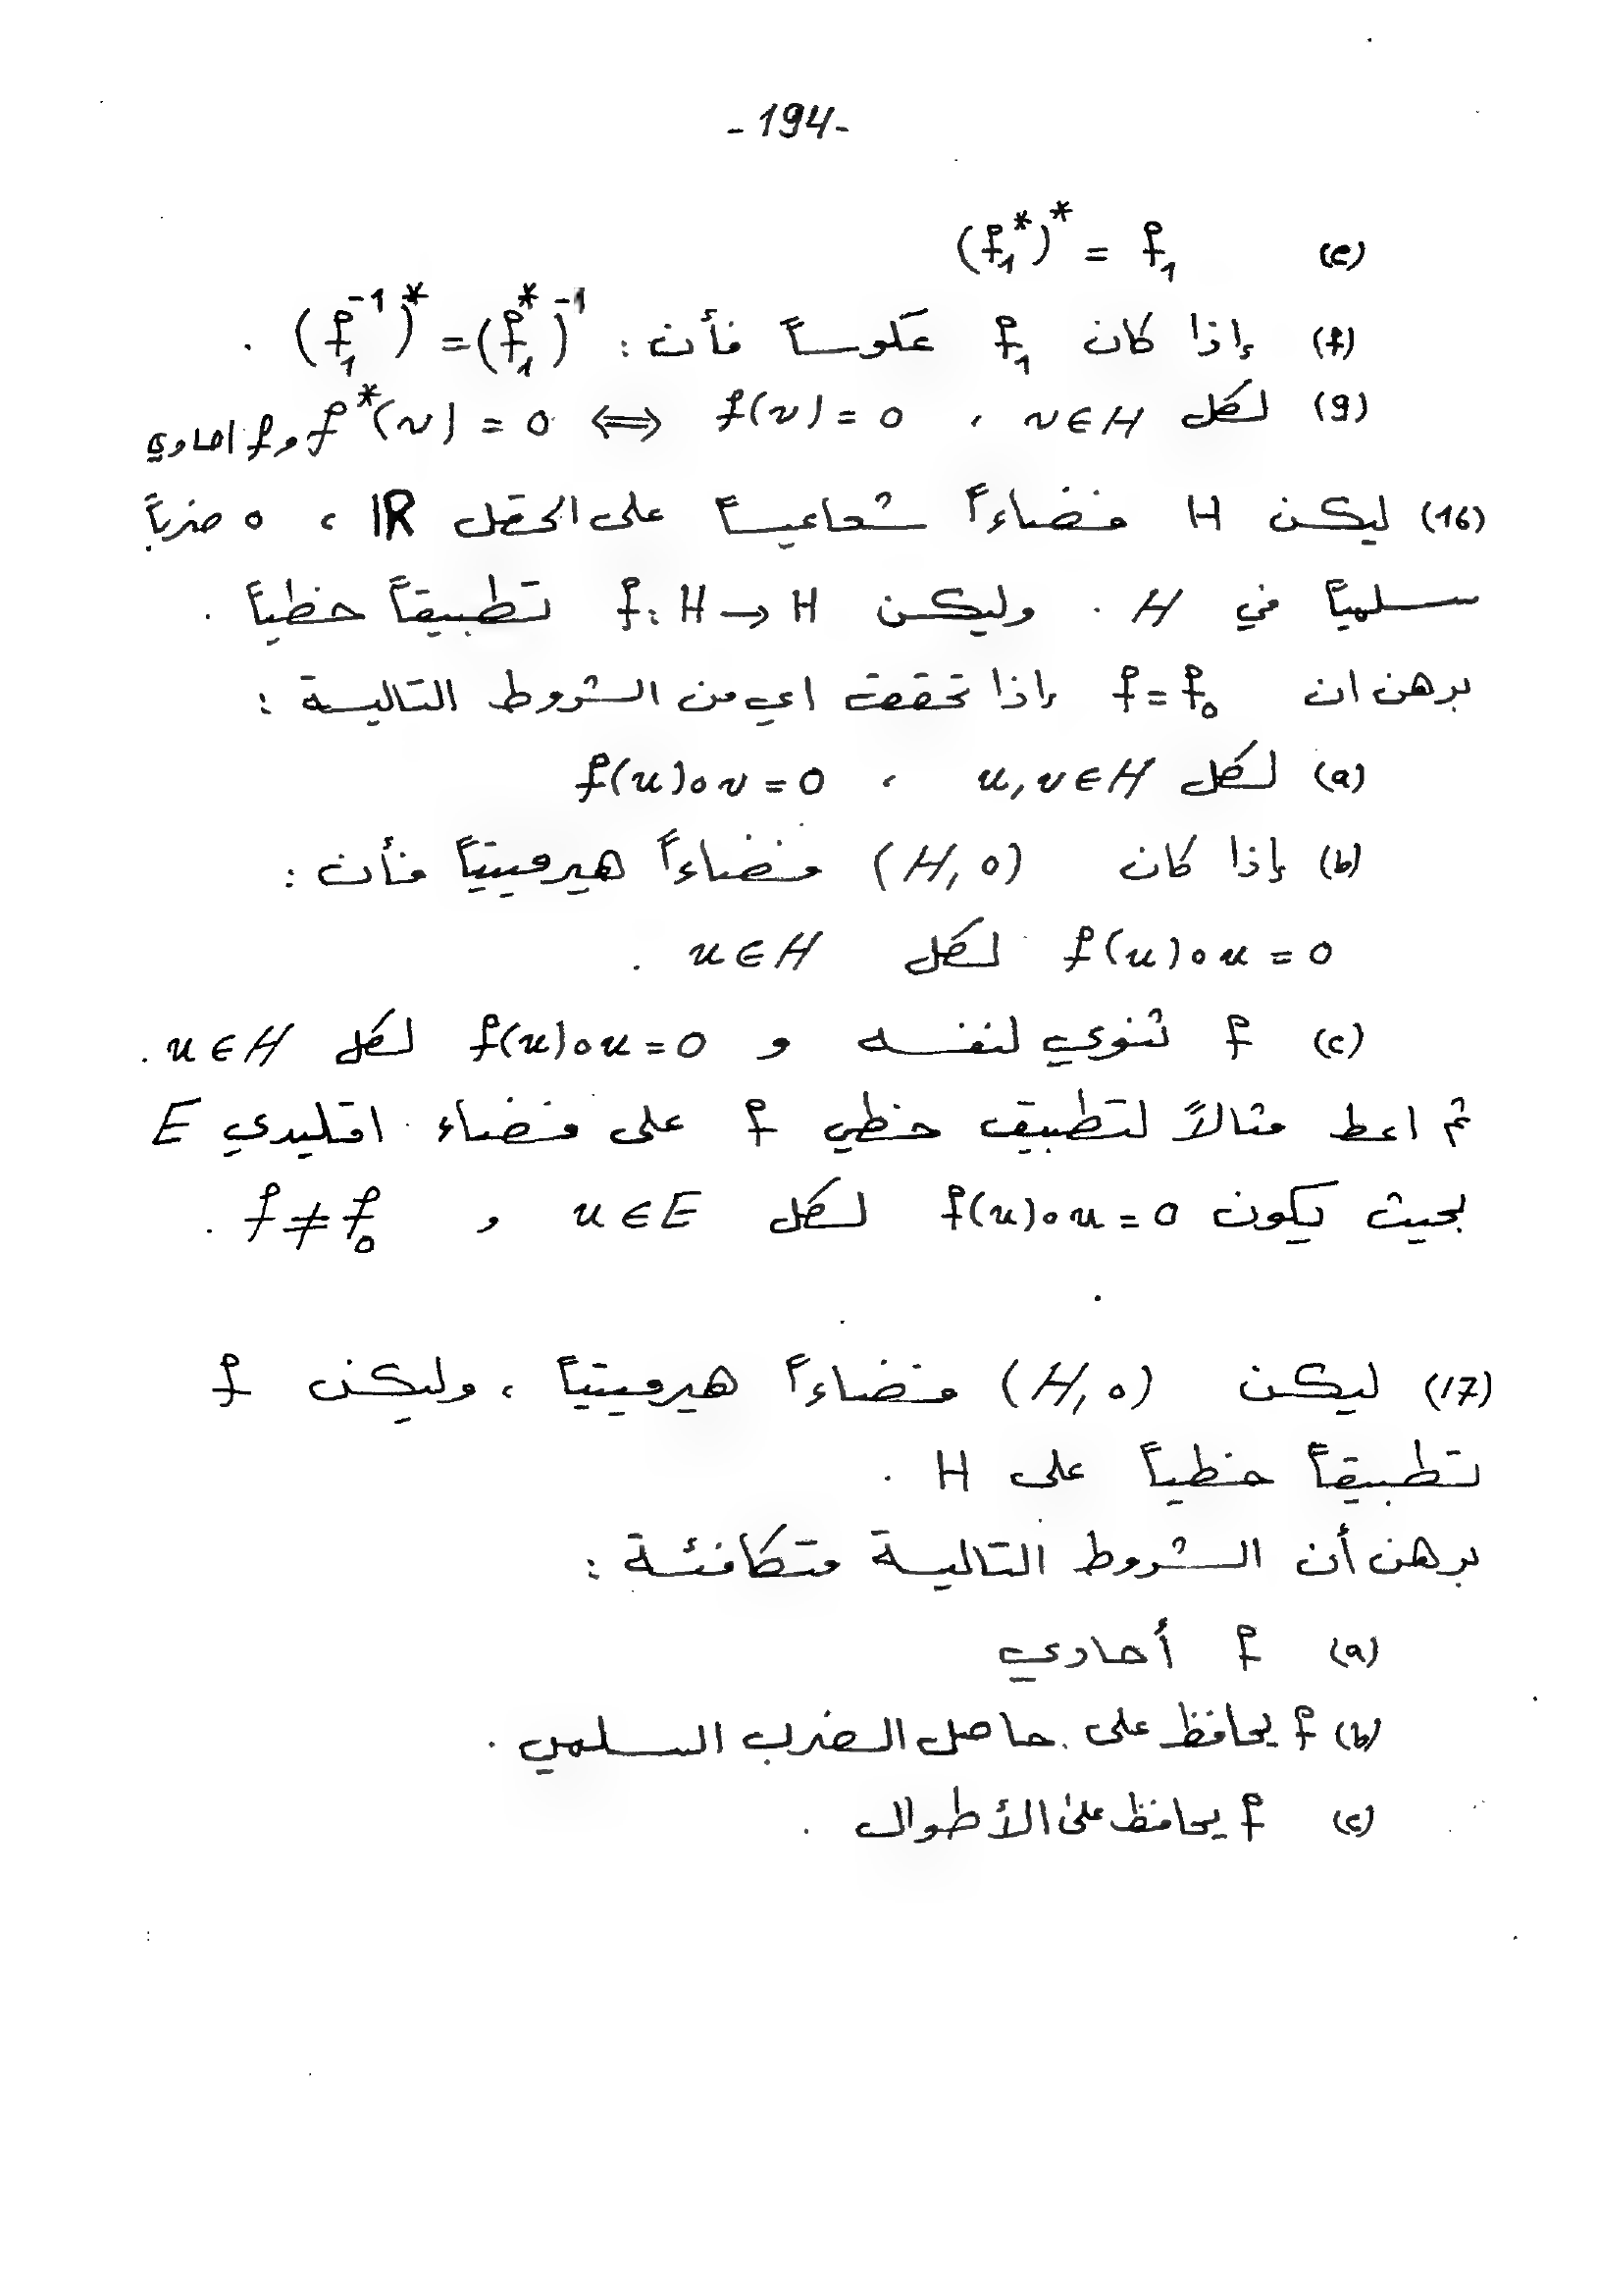 - 194 -
(e) (f₁*)* = f₁
(f) إذا كان f₁ عكوساً فأن : (f₁⁻¹)* = (f₁*)⁻¹ .
(g) لكل v∈H ، f(v) = 0 ⟺ f*(v) = 0 و f احادي
(16) ليكن H فضاءاً شعاعياً على الحقل ℝ ، ∘ ضرباً
سلمياً في H . وليكن f: H → H تطبيقاً خطياً .
برهن ان f = f₀ إذا تحققت اي من الشروط التالية :
(a) لكل u, v ∈ H ، f(u)∘v = 0
(b) إذا كان (H, ∘) فضاءاً هيرميتياً فأن :
f(u)∘u = 0 لكل u∈H .
(c) f ثنوي لنفسه و f(u)∘u = 0 لكل u∈H .
ثم اعط مثالاً لتطبيق خطي f على فضاء اقليدي E
بحيث يكون f(u)∘u = 0 لكل u∈E و f ≠ f₀ .
(17) ليكن (H, ∘) فضاءاً هيرميتياً ، وليكن f
تطبيقاً خطياً على H .
برهن أن الشروط التالية متكافئة :
(a) f أحادي
(b) f يحافظ على حاصل الضرب السلمي .
(c) f يحافظ على الأطوال .